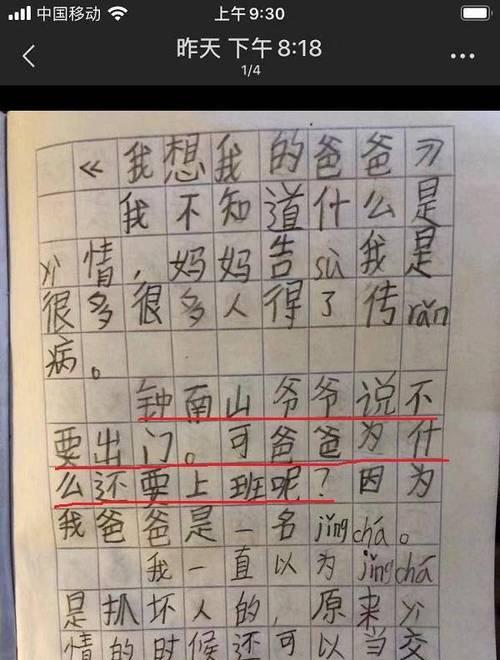 中国移动 上午9:30
昨天 下午8:18
1/4
《我想我的爸爸》
我不知道什么是
yì情，妈妈告sù我是
很多很多人得了传rǎn
病。
钟南山爷爷说不
要出门。可爸爸为什
么还要上班呢？因为
我爸爸是一名jǐng chá。
我一直以为jǐng chá
是抓坏人的，原来yì
情的时候还可以当交